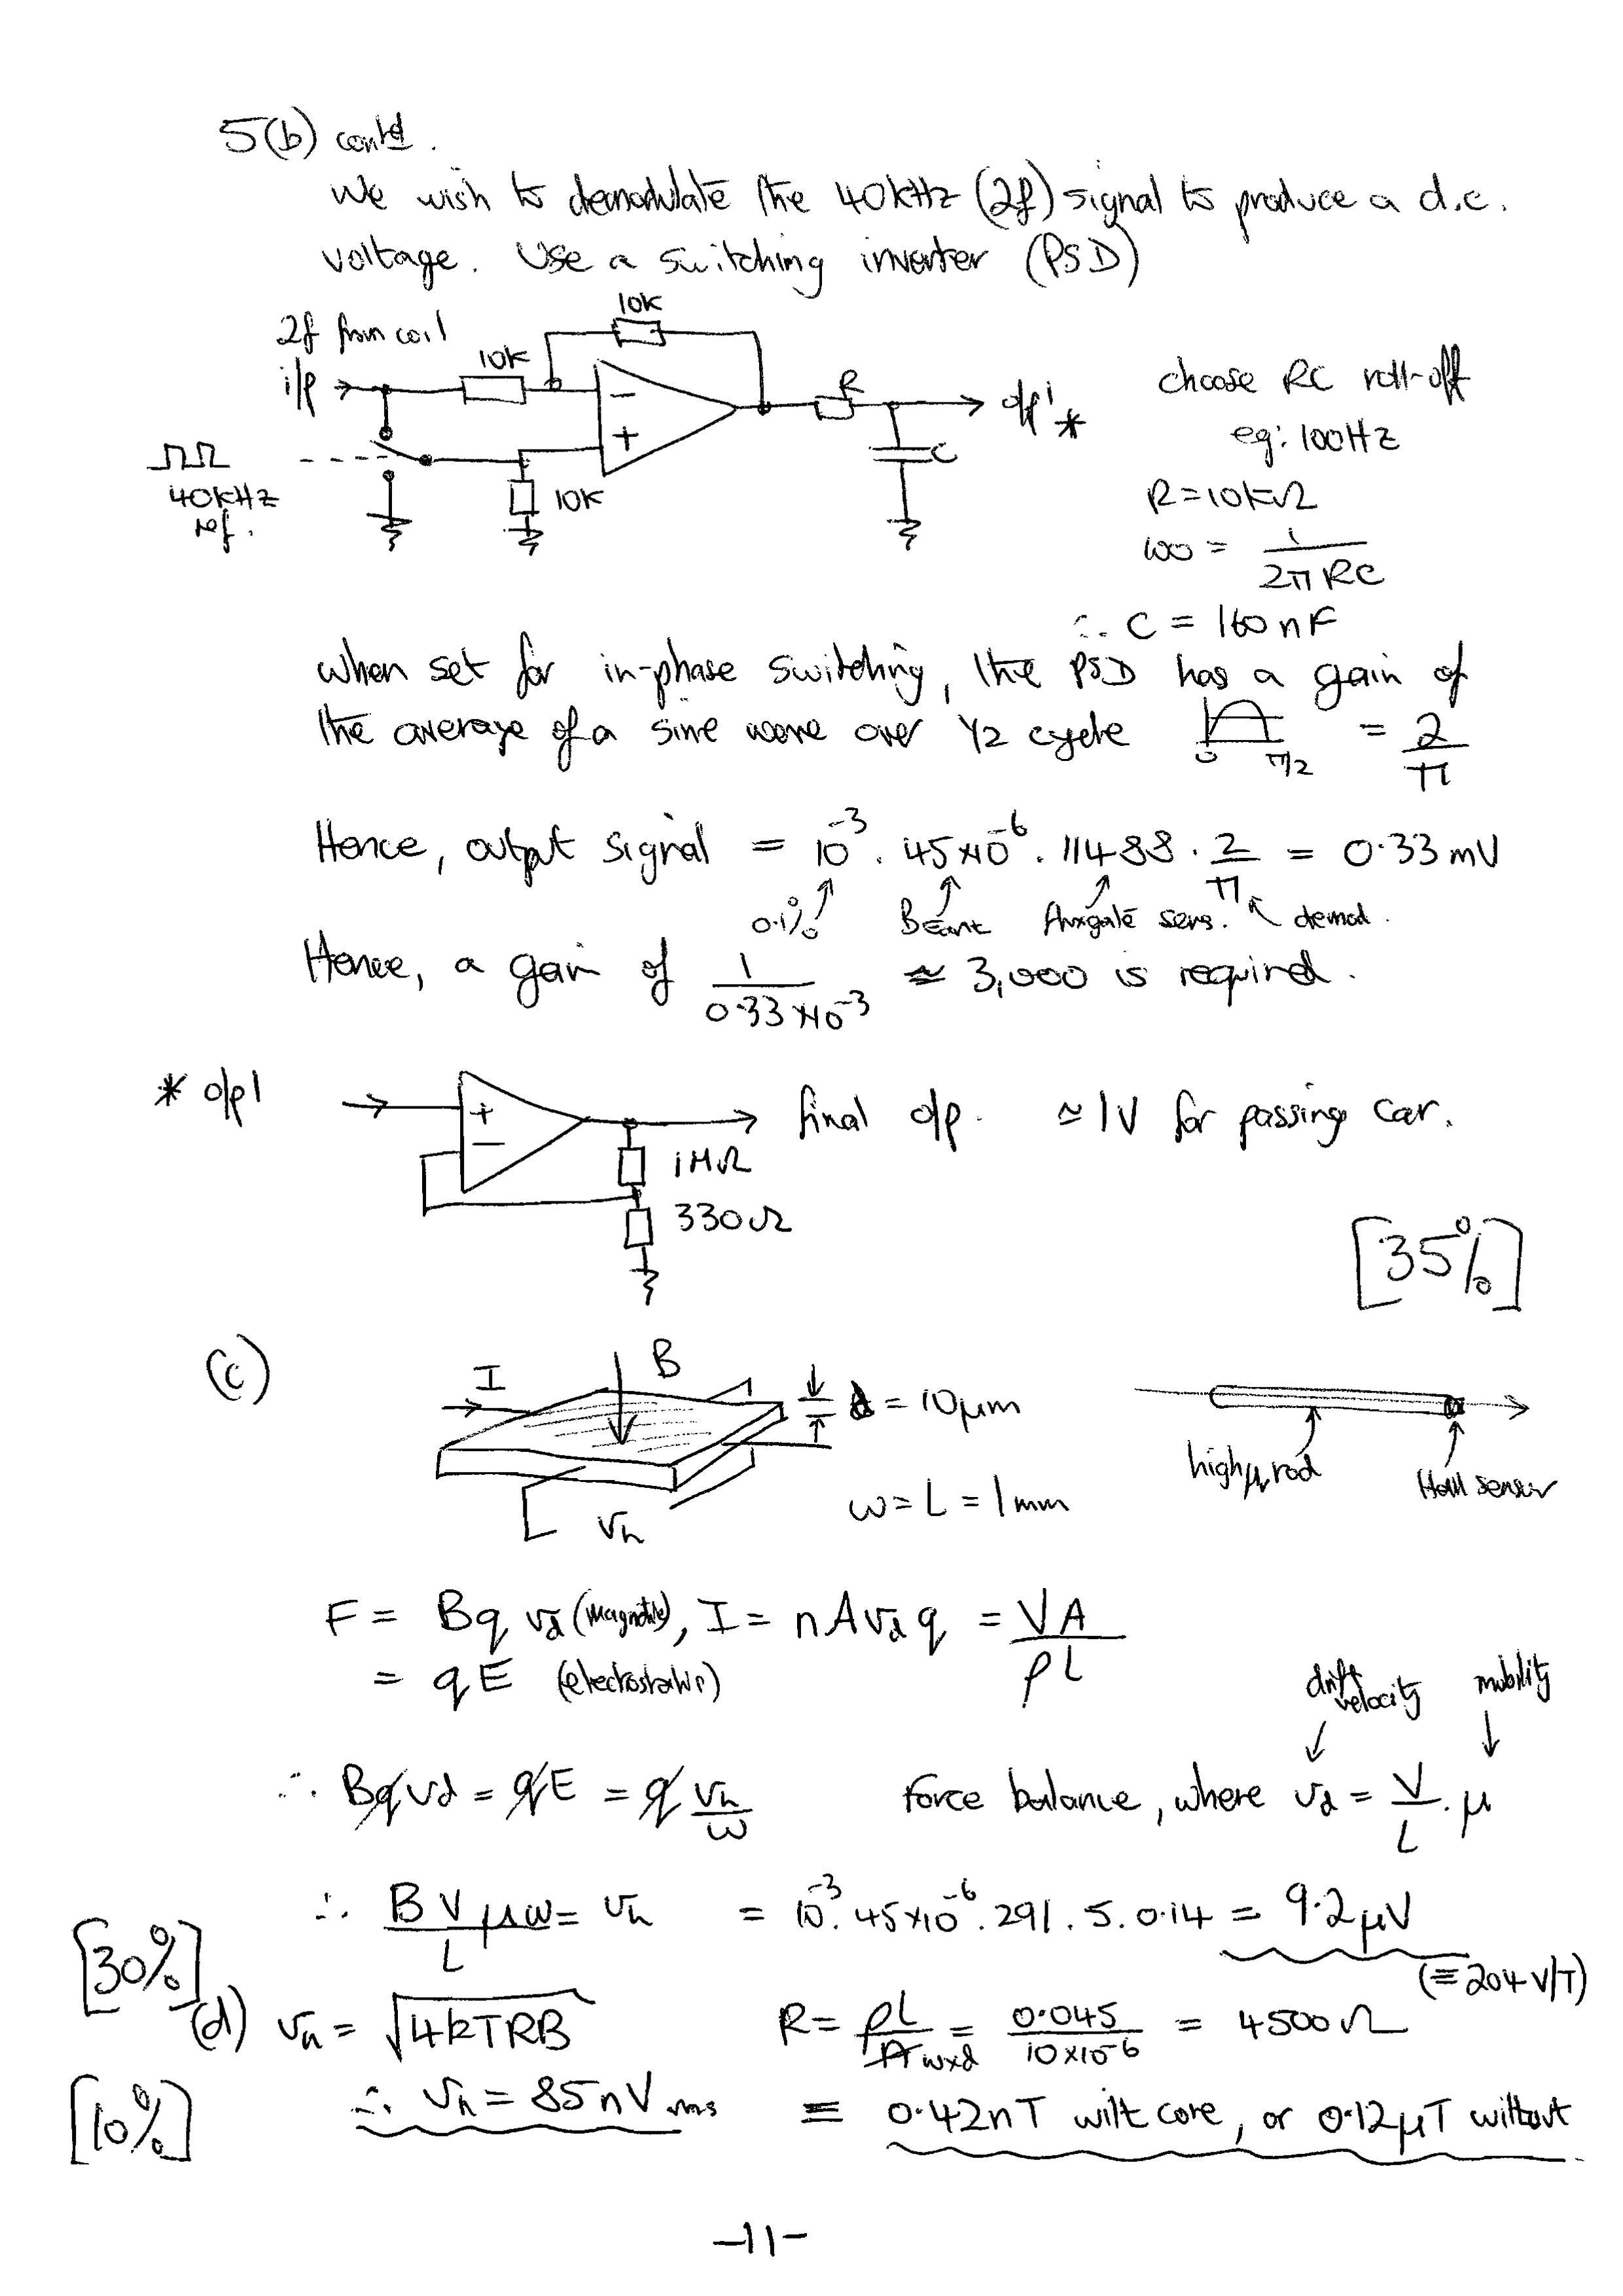 5(b) contd.
We wish to demodulate the 40kHz (2f) signal to produce a d.c.
voltage. Use a switching inverter (PSD)
10k
2f from coil
i/p
10k
−
+
R
o/p1 *
C
40kHz
ref.
10k
choose RC roll-off
eg: 100Hz
R = 10kΩ
100 = 1 / 2π RC
∴ C = 160nF
When set for in-phase switching, the PSD has a gain of
the average of a sine wave over 1/2 cycle 0 π/2 = 2/π
Hence, output signal = 10⁻³ . 45×10⁻⁶ . 11488 . 2/π = 0.33mV
0.1% BEant fluxgate sens. demod.
Hence, a gain of 1 / 0.33×10⁻³ ≈ 3,000 is required.
* o/p1
+
−
final o/p. ≃ 1V for passing car.
1MΩ
330Ω
[35%]
(c)
I
B
d = 10μm
w = L = 1mm
Vh
high μr rod
Hall sensor
F = Bq vd (magnetic), I = nAvdq = VA / ρL
= qE (electrostatic)
drift velocity
mobility
∴ Bqvd = qE = q vh/w
Force balance, where vd = V/L . μ
∴ BV/L μw = vh = 10⁻³. 45×10⁻⁶. 291 . 5 . 0.14 = 9.2μV
(≡ 204 V/T)
[30%]
(d) vn = √4kTRB
R = ρL / A w×d = 0.045 / 10×10⁻⁶ = 4500Ω
[10%]
∴ vn = 85nV rms ≡ 0.42nT wilt core, or 0.12μT without
-11-